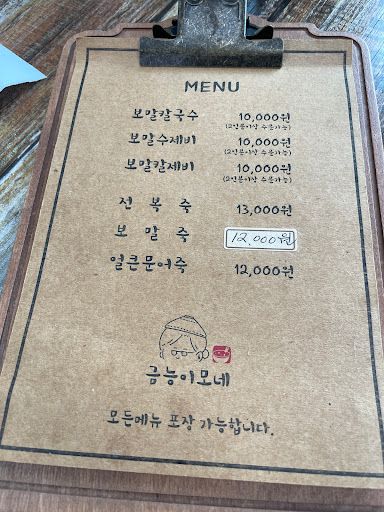 MENU
보말칼국수 10,000원
(2인분이상 주문가능)
보말수제비 10,000원
(2인분이상 주문가능)
보말칼제비 10,000원
(2인분이상 주문가능)
전복죽 13,000원
보말죽 12,000원
얼큰문어죽 12,000원
금능이모네
모든메뉴 포장 가능합니다.